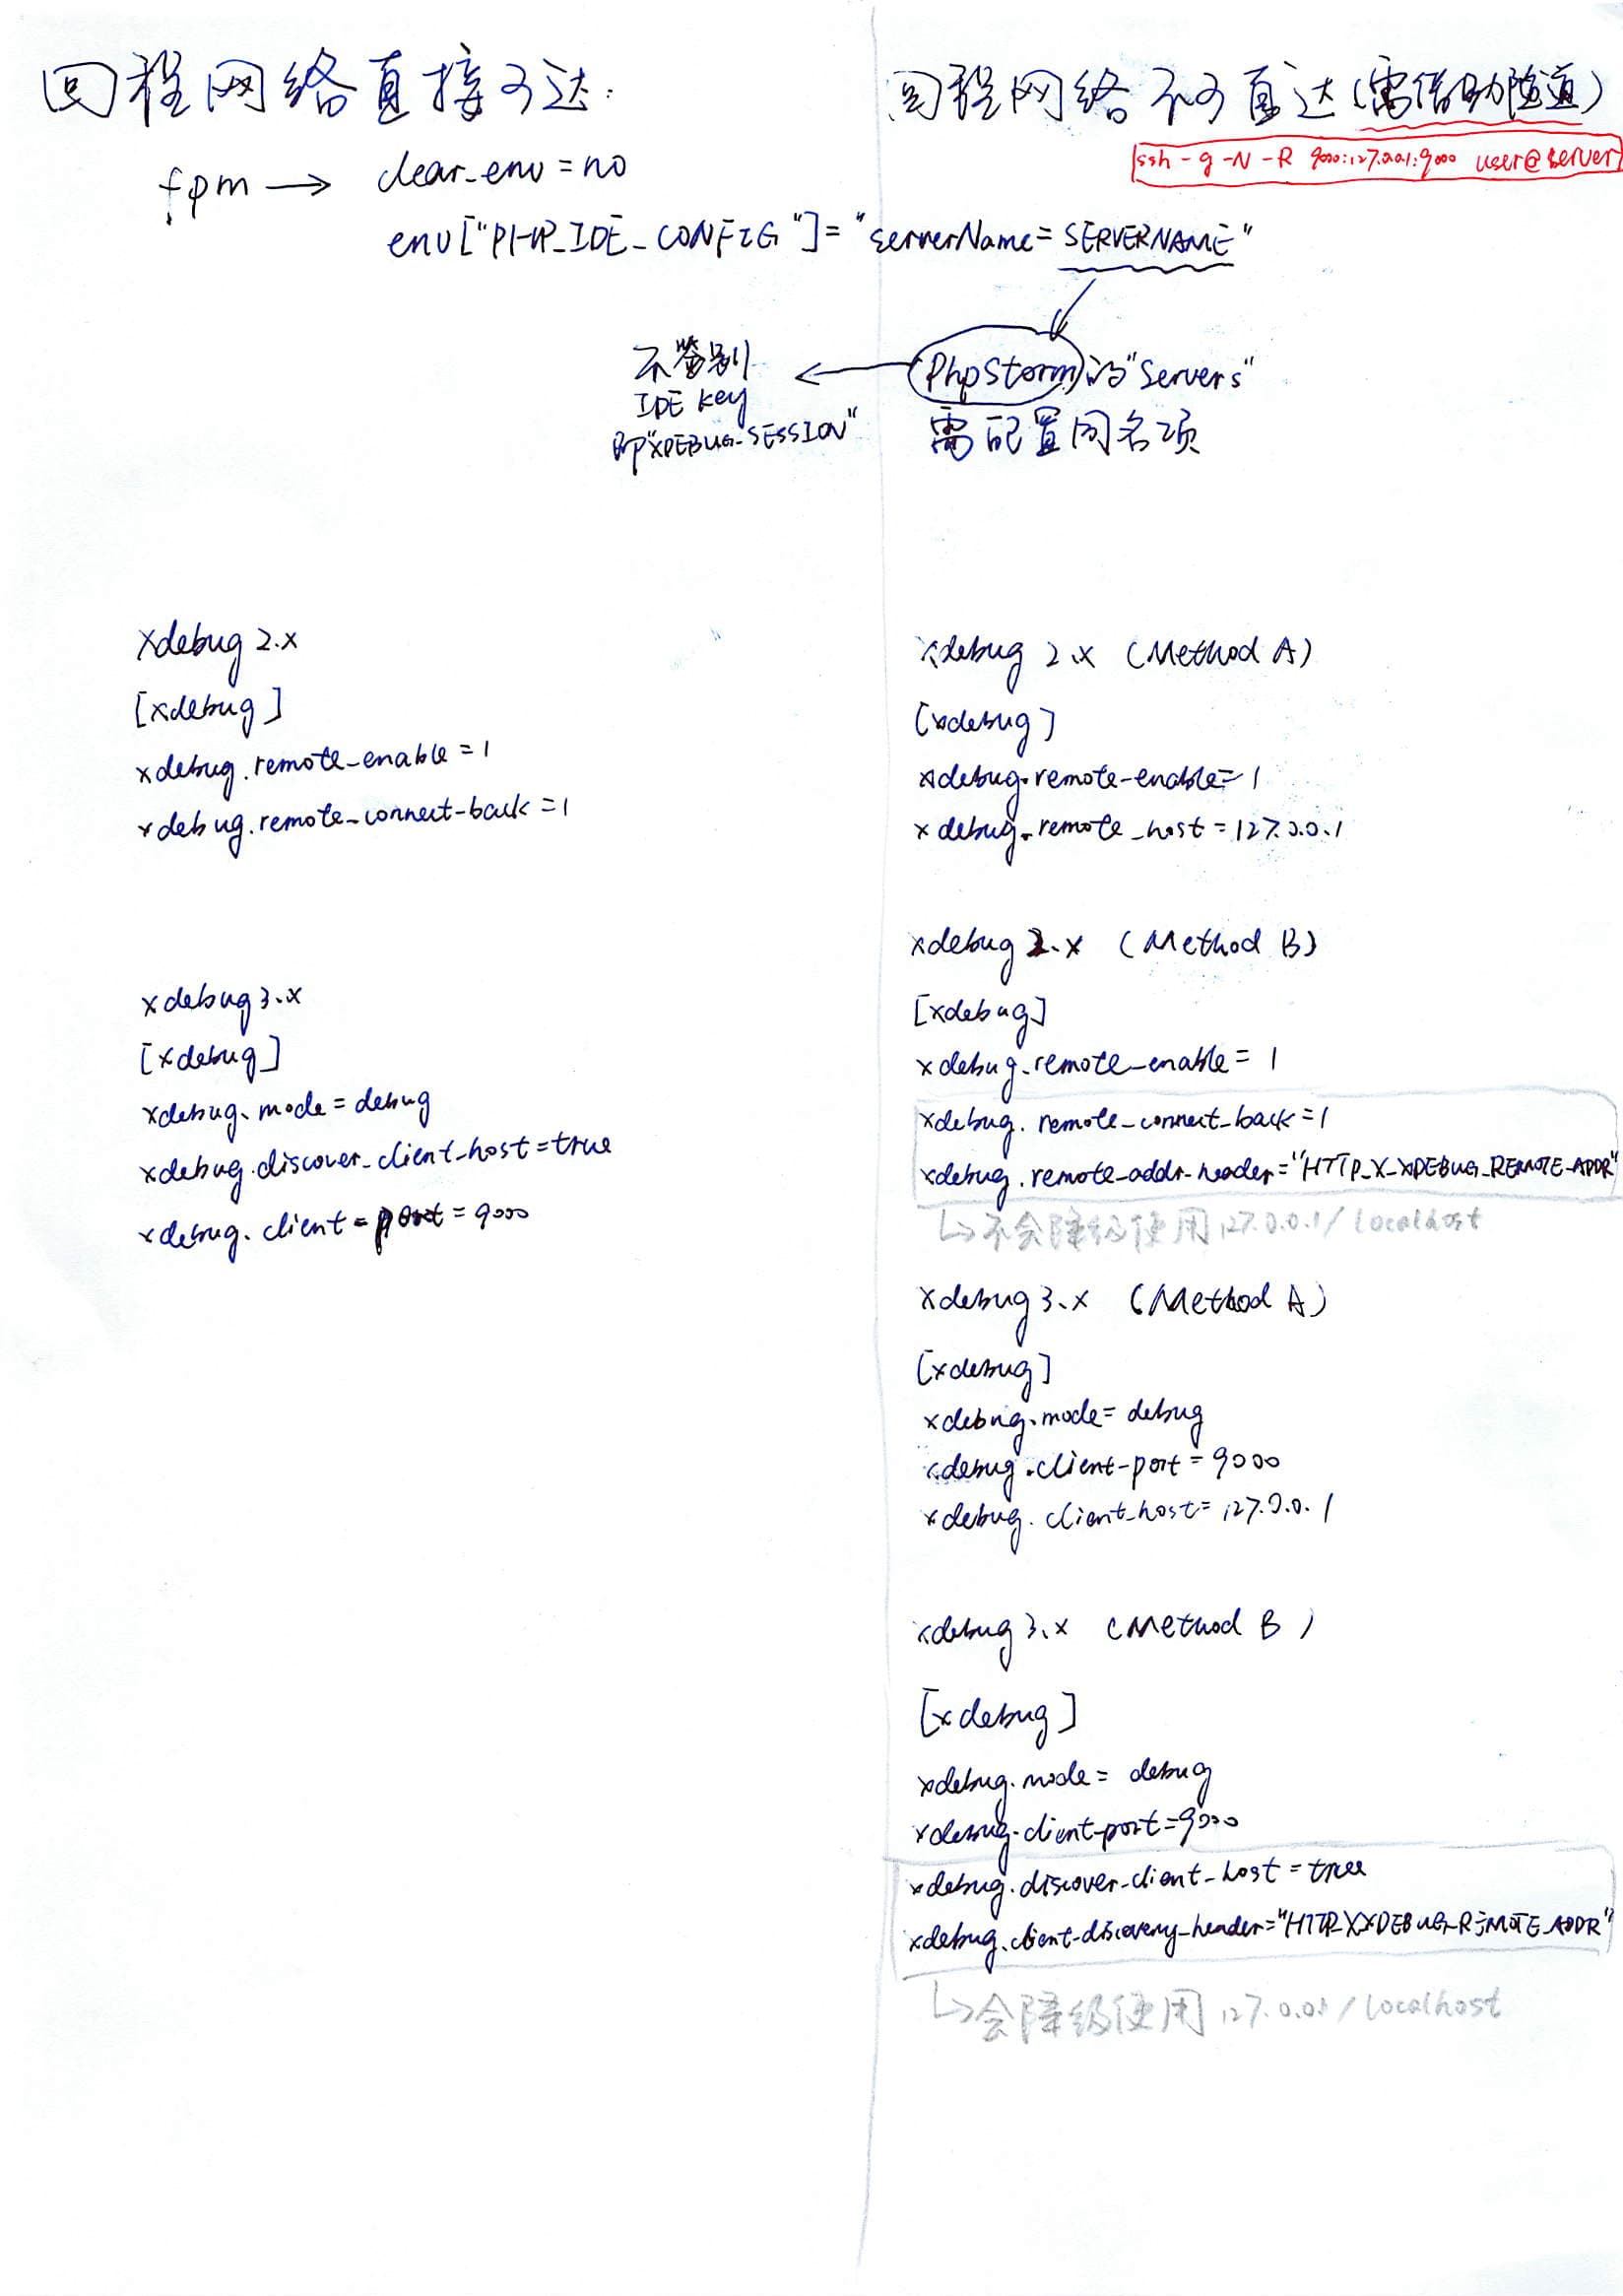 回程网络直接可达:
回程网络不可直达(需借助隧道)
ssh -g -N -R 9000:127.0.0.1:9000 user@server
fpm → clear_env = no
env["PHP_IDE_CONFIG"]="serverName=SERVERNAME"
PhpStorm的"Servers"
需配置同名项
不鉴别
IDE key
即"XDEBUG_SESSION"
xdebug 2.x
[xdebug]
xdebug.remote_enable=1
xdebug.remote_connect_back=1
xdebug3.x
[xdebug]
xdebug.mode=debug
xdebug.discover_client_host=true
xdebug.client_port=9000
xdebug 2.x (Method A)
[xdebug]
xdebug.remote_enable=1
xdebug.remote_host=127.0.0.1
xdebug 2.x (Method B)
[xdebug]
xdebug.remote_enable=1
xdebug.remote_connect_back=1
xdebug.remote_addr_header="HTTP_X_XDEBUG_REMOTE_ADDR"
↳不会降级使用127.0.0.1/localhost
xdebug3.x (Method A)
[xdebug]
xdebug.mode=debug
xdebug.client_port=9000
xdebug.client_host=127.0.0.1
xdebug3.x (Method B)
[xdebug]
xdebug.mode=debug
xdebug.client_port=9000
xdebug.discover_client_host=true
xdebug.client_discovery_header="HTTP_X_XDEBUG_REMOTE_ADDR"
↳会降级使用127.0.0.1/localhost